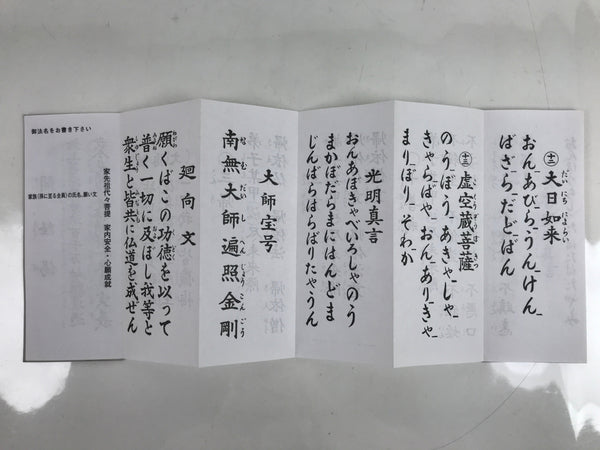 十二 大日如来
おんあびらうんけん
ばざらだどばん
十三 虚空蔵菩薩
のうぼうあきゃしゃ
きゃらばやおんありきゃ
まりぼりそわか
光明真言
おんあぼきゃべいろしゃのう
まかぼだらまにはんどま
じんばらはらばりたやうん
大師宝号
南無大師遍照金剛
廻向文
願くはこの功徳を以って
普く一切に及ぼし我等と
衆生と皆共に仏道を成ぜん
家先祖代々菩提 家内安全・心願成就
家族(孫に至る全員)の氏名、願い文
御法名をお書き下さい